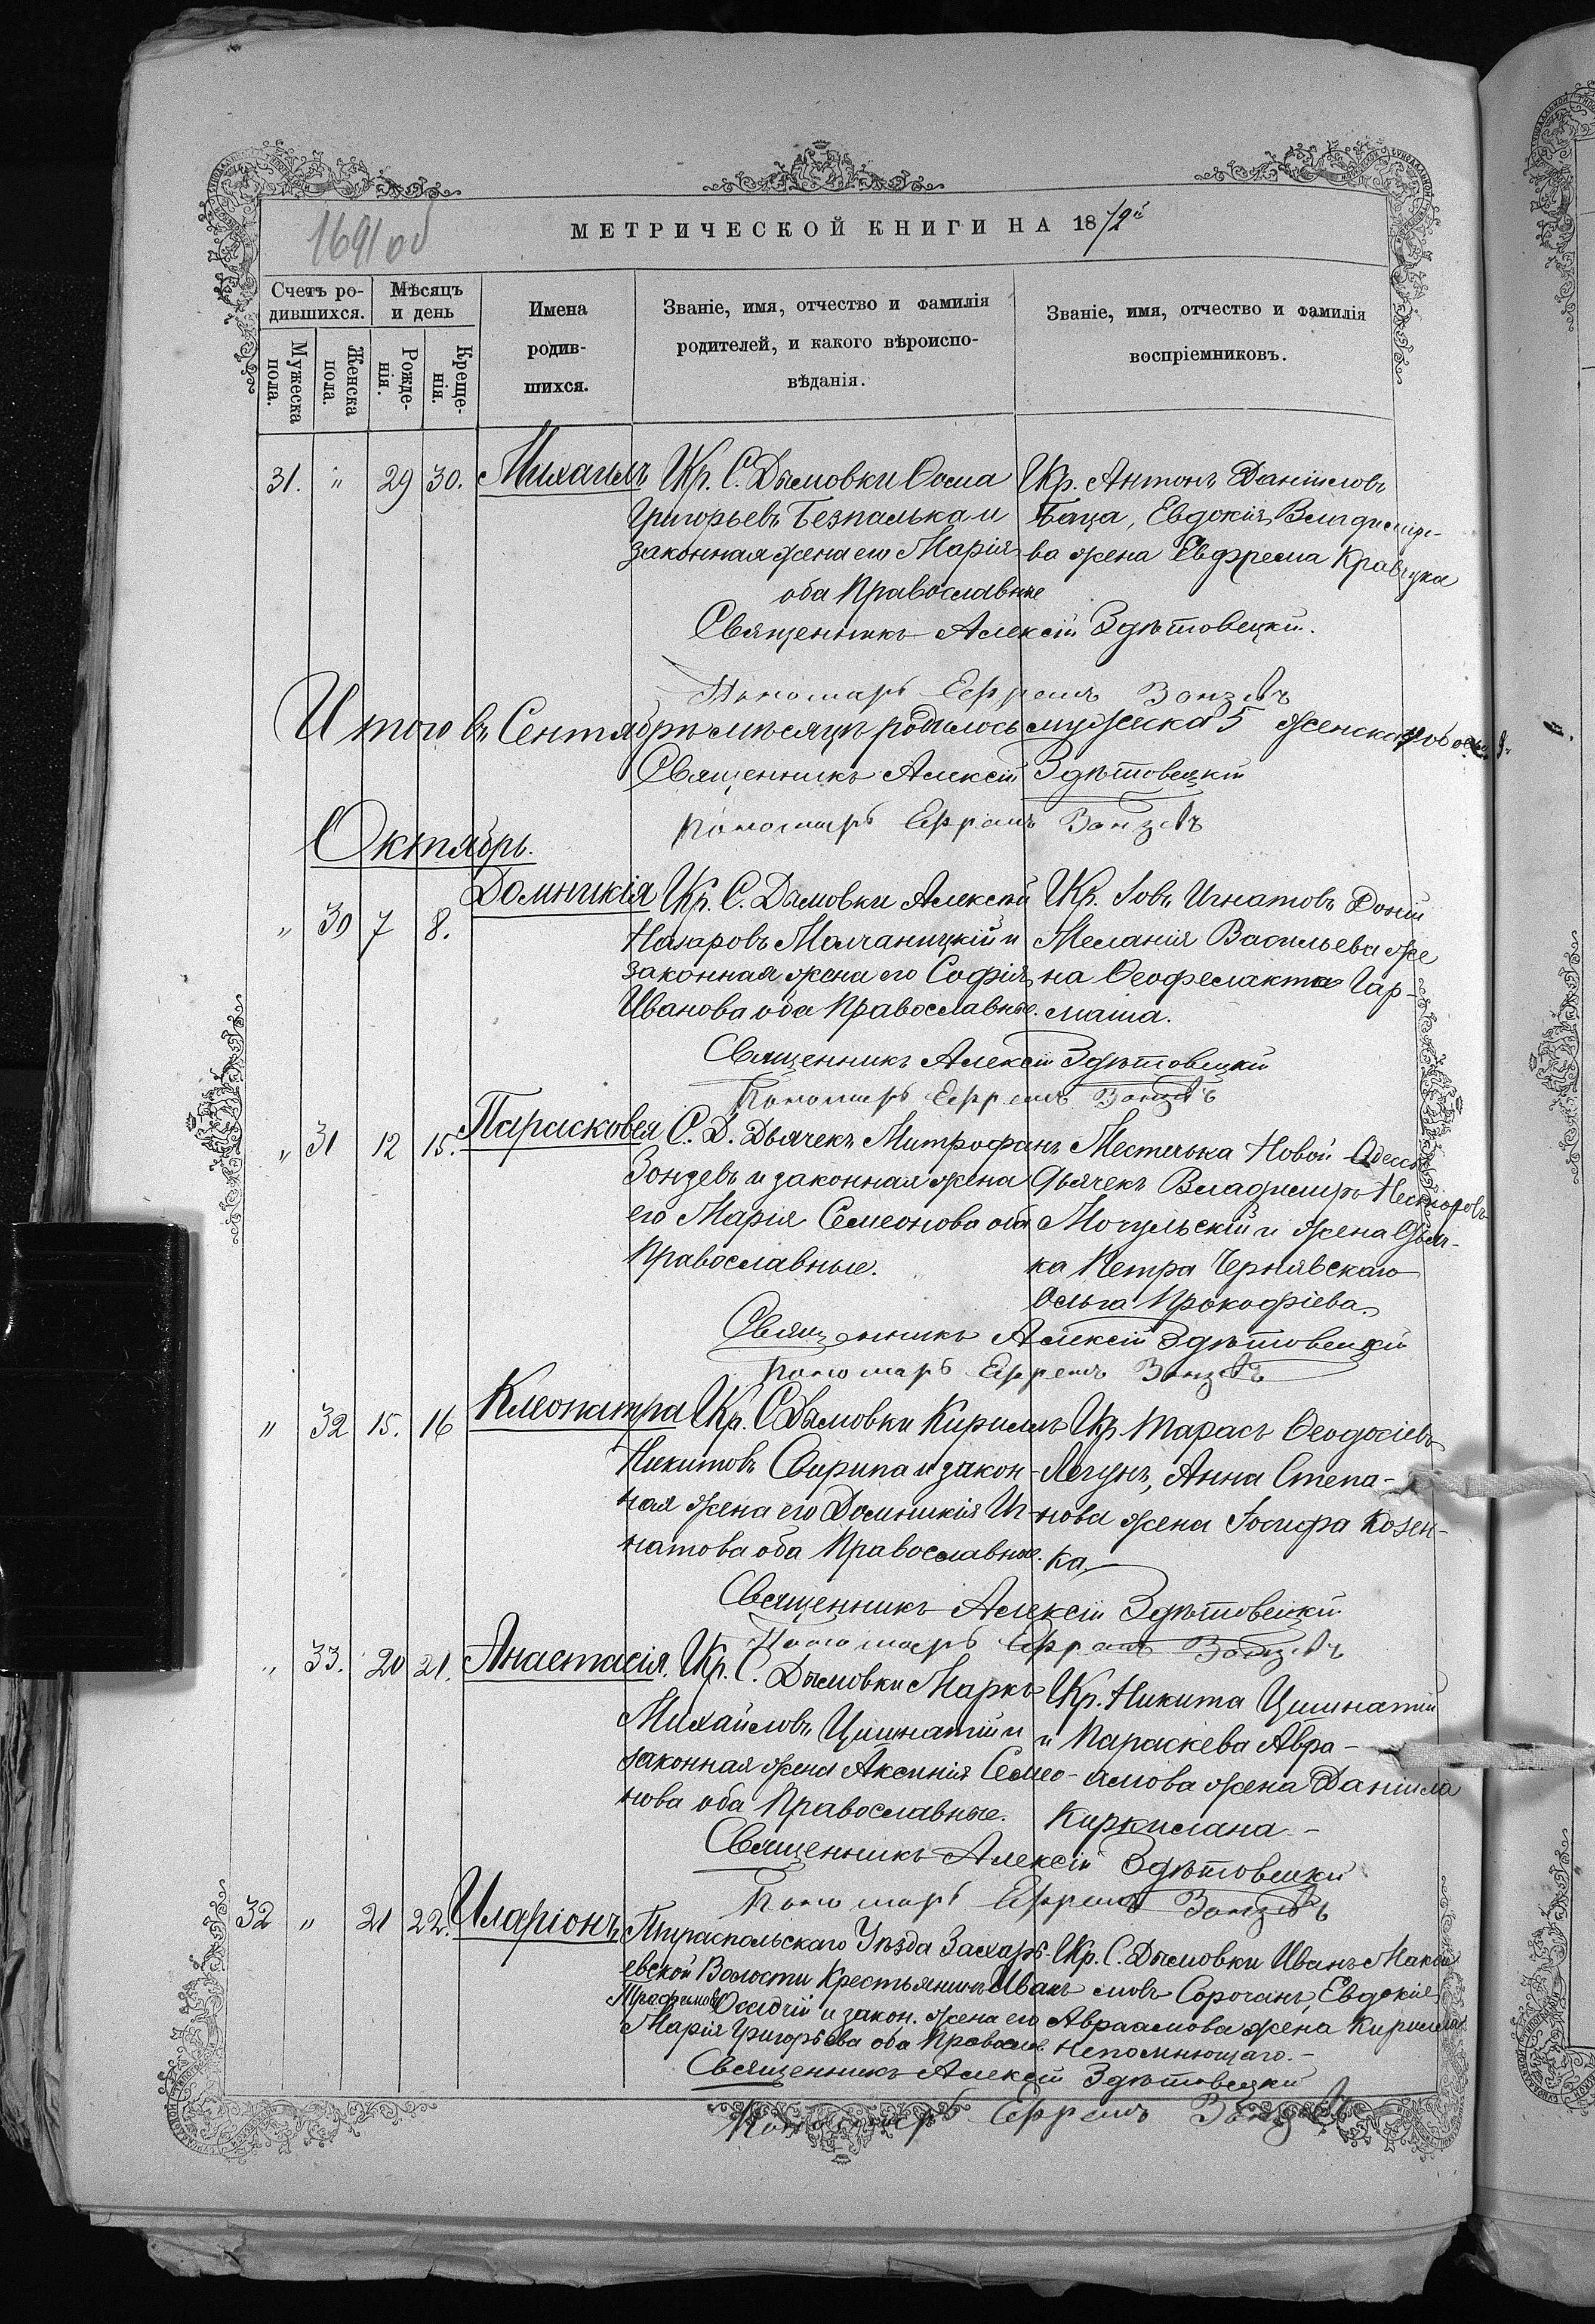 1691 об
МЕТРИЧЕСКОЙ КНИГИ НА 1872й
Счетъ ро-
дившихся.
Мѣсяцъ
и день
Имена
родив-
шихся.
Званіе, имя, отчество и фамилія
родителей, и какого вѣроиспо-
вѣданія.
Званіе, имя, отчество и фамилія
воспріемниковъ.
Мужеска
пола.
Женска
пола.
Рожде-
нія.
Креще-
нія.
31. " 29 30. Михаилъ
Кр. С. Дымовки Ѳома
Григорьевъ Безпалька и
законная жена его Марія
оба Православные
Кр. Антонъ Даніиловъ
Баца, Евдокія Владиміро-
ва жена Евфрема Кравчука
Священникъ Алексій Здѣтовецкій.
Пономарь Ефремъ Зонзѣвъ
Итого въ Сентябрѣ мѣсяцѣ родилось мужеска 5 женска
Священникъ Алексій Здѣтовецкій
Пономарь Ефремъ Зонзѣвъ
Октябрь.
" 30 7 8. Домникія
Кр. С. Дымовки Алексѣй
Назаровъ Молчаницкій и
законная жена его Софія
Иванова оба Православные.
Кр. Іовъ Игнатовъ Доній
Меланія Васильева же
на Ѳеофелакта Гар-
маша.
Священникъ Алексій Здѣтовецкій
Пономарь Ефремъ Зонзѣвъ
" 31 12 15. Парасковея
С. Д. Дьячекъ Митрофанъ
Зонзевъ и законная жена
его Марія Семеонова оба
Православные.
Местечка Новой Одессы
Дьячекъ Владимиръ Несторовъ
Могульскій и жена Дьяч-
ка Петра Чернявскаго
Ольга Прокофіева.
Священникъ Алексій Здѣтовецкій
Пономарь Ефремъ Зонзѣвъ
" 32 15. 16 Клеопатра
Кр. С Дымовки Кириллъ
Никитовъ Свирипа и закон-
ная жена его Домникія Иг-
натова оба Православные.
Кр. Тарасъ Ѳеодосіевъ
Лагунъ, Анна Степа-
нова жена Іосифа Козен-
ка
Священникъ Алексій Здѣтовецкій
Пономарь Ефремъ Зонзѣвъ
" 33. 20 21. Анастасія.
Кр. С. Дымовки Маркъ
Михайловъ Цимнатій и
законная жена Аксинія Семео-
нова оба Православные.
Кр. Никита Цимнатій
и Параскева Авра-
амова жена Даніила
Киркилана -
Священникъ Алексій Здѣтовецкій
Пономарь Ефремъ Зонзѣвъ
32 " 21 22. Иларіонъ
Тираспольскаго Уѣзда Захарь-
евской Волости Крестьянинъ Иванъ
Трофимовъ Осадчій и закон. жена его
Марія Григорьева оба Православ.
Кр. С. Дымовки Иванъ Макси
мовъ Сорочанъ, Евдокія
Авраамова жена Кирилла
Непомнющаго.-
Священникъ Алексій Здѣтовецкій
Пономарь Ефремъ Зонзѣвъ